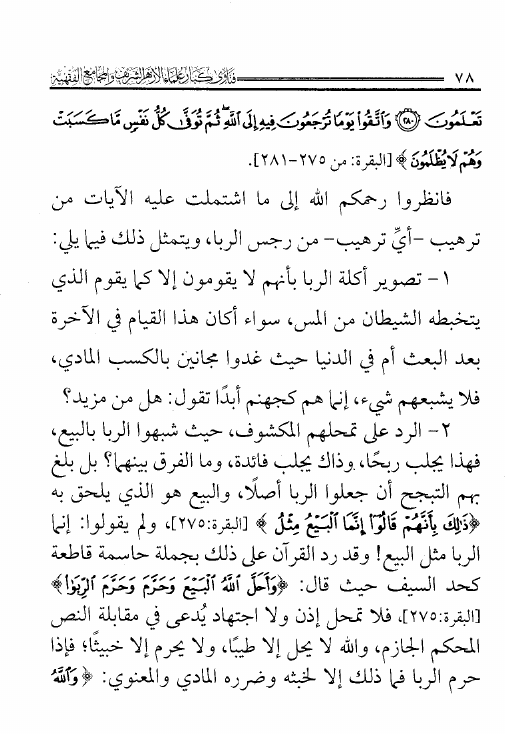 ٧٨ فتاوى كبار علماء الأزهر الشريف والمجامع الفقهية
تَعْلَمُونَ ۝٢٨٠ وَاتَّقُوا يَوْمًا تُرْجَعُونَ فِيهِ إِلَى اللَّهِ ثُمَّ تُوَفَّى كُلُّ نَفْسٍ مَّا كَسَبَتْ
وَهُمْ لَا يُظْلَمُونَ ﴾ [البقرة: من ٢٧٥-٢٨١].
فانظروا رحمكم الله إلى ما اشتملت عليه الآيات من
ترهيب -أيِّ ترهيب- من رجس الربا، ويتمثل ذلك فيما يلي:
١- تصوير أكلة الربا بأنهم لا يقومون إلا كما يقوم الذي
يتخبطه الشيطان من المس، سواء أكان هذا القيام في الآخرة
بعد البعث أم في الدنيا حيث غدوا مجانين بالكسب المادي،
فلا يشبعهم شيء، إنما هم كجهنم أبدًا تقول: هل من مزيد؟
٢- الرد على تمحلهم المكشوف، حيث شبهوا الربا بالبيع،
فهذا يجلب ربحًا، وذاك يجلب فائدة، وما الفرق بينهما؟ بل بلغ
بهم التبجح أن جعلوا الربا أصلًا، والبيع هو الذي يلحق به
﴿ذَلِكَ بِأَنَّهُمْ قَالُوا إِنَّمَا الْبَيْعُ مِثْلُ ﴾ [البقرة:٢٧٥]، ولم يقولوا: إنما
الربا مثل البيع! وقد رد القرآن على ذلك بجملة حاسمة قاطعة
كحد السيف حيث قال: ﴿وَأَحَلَّ اللَّهُ الْبَيْعَ وَحَرَّمَ وَحَرَّمَ الرِّبَوٰا﴾
[البقرة:٢٧٥]، فلا تمحل إذن ولا اجتهاد يُدعى في مقابلة النص
المحكم الجازم، والله لا يحل إلا طيبًا، ولا يحرم إلا خبيثًا؛ فإذا
حرم الربا فما ذلك إلا لخبثه وضرره المادي والمعنوي: ﴿ وَاللَّهُ